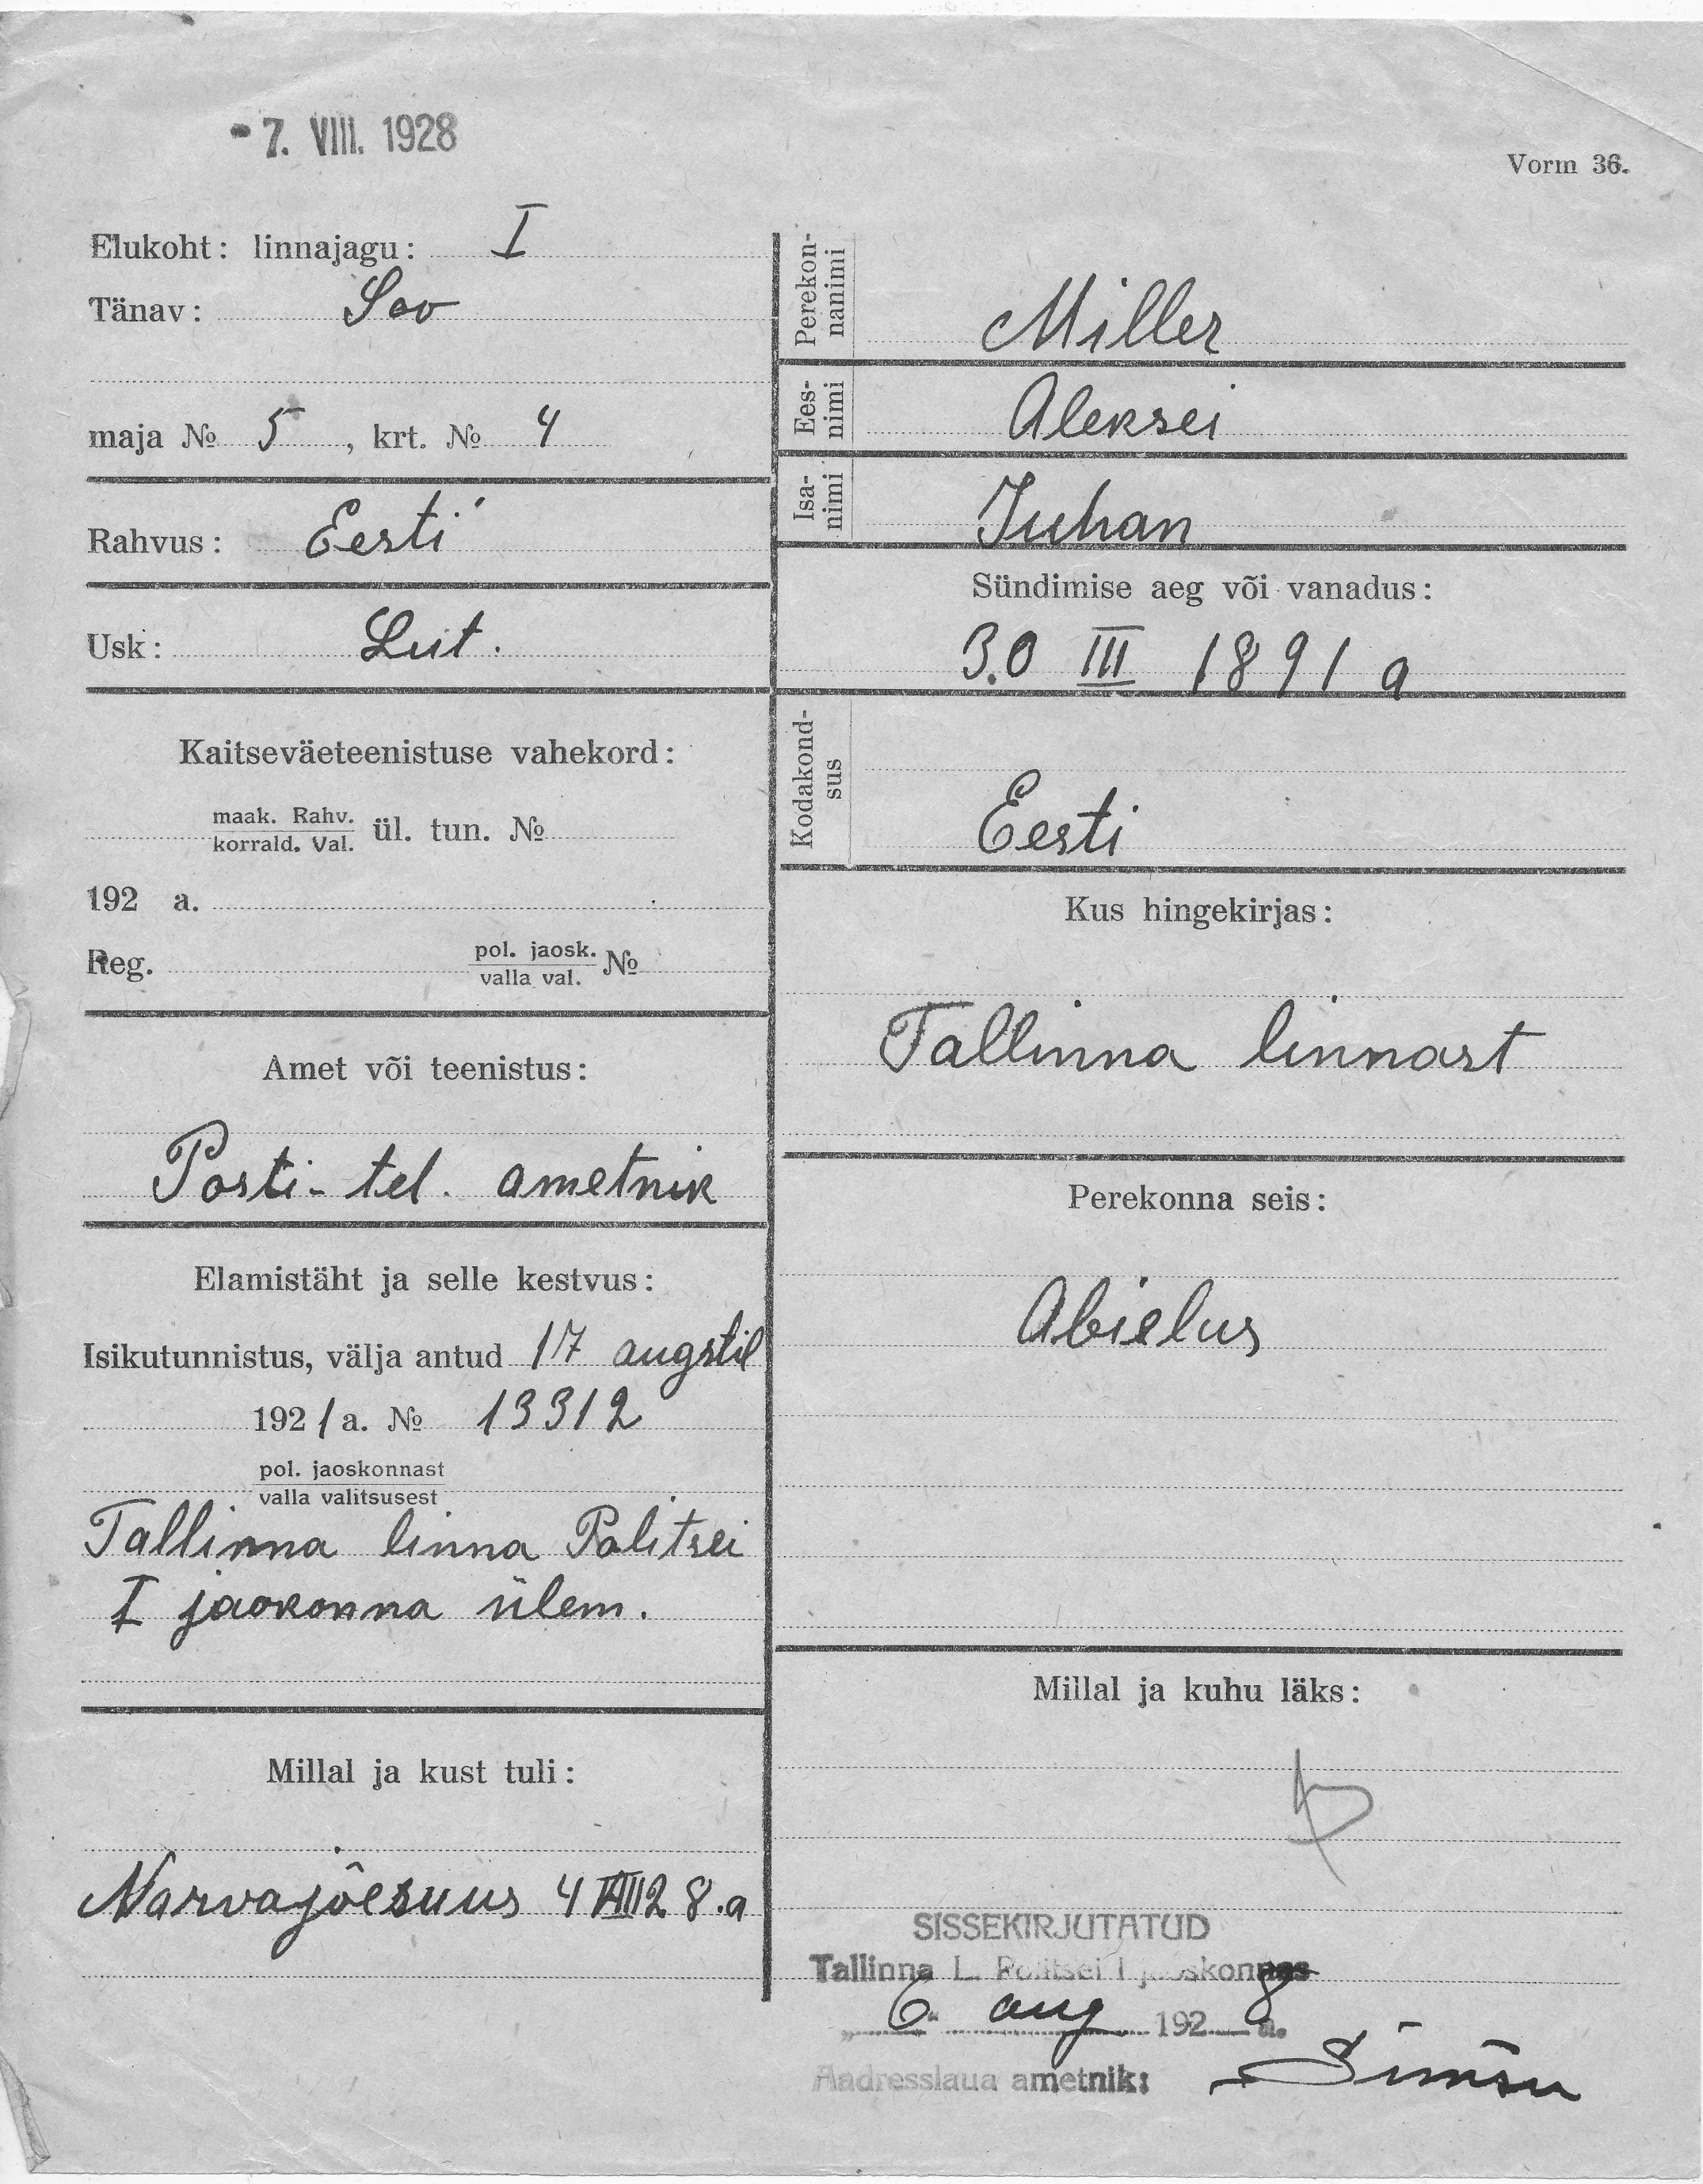 -7. VIII. 1928
Vorm 36.
Elukoht: linnajagu: I
Tänav: Soo
maja № 5, krt. № 4
Rahvus: Eesti
Usk: Lut.
Kaitseväeteenistuse vahekord:
maak. Rahv.
korrald. Val. ül. tun. №
192 a.
Reg. pol. jaosk.
valla val. №
Amet või teenistus:
Posti-tel. ametnik
Elamistäht ja selle kestvus:
Isikutunnistus, välja antud 17 augstil
1921 a. № 13312
pol. jaoskonnast
valla valitsusest
Tallinna linna Politsei
I jaokonna ülem.
Millal ja kust tuli:
Narvajõesuus 4 VIII 28.a
Perekon-
nanimi
Miller
Ees-
nimi
Aleksei
Isa-
nimi
Juhan
Sündimise aeg või vanadus:
30 III 1891 a
Kodakond-
sus
Eesti
Kus hingekirjas:
Tallinna linnast
Perekonna seis:
Abielus
Millal ja kuhu läks:
SISSEKIRJUTATUD
Tallinna L. Politsei I jaoskonnas
„ 6 " aug 1928 a.
Aadresslaua ametnik: